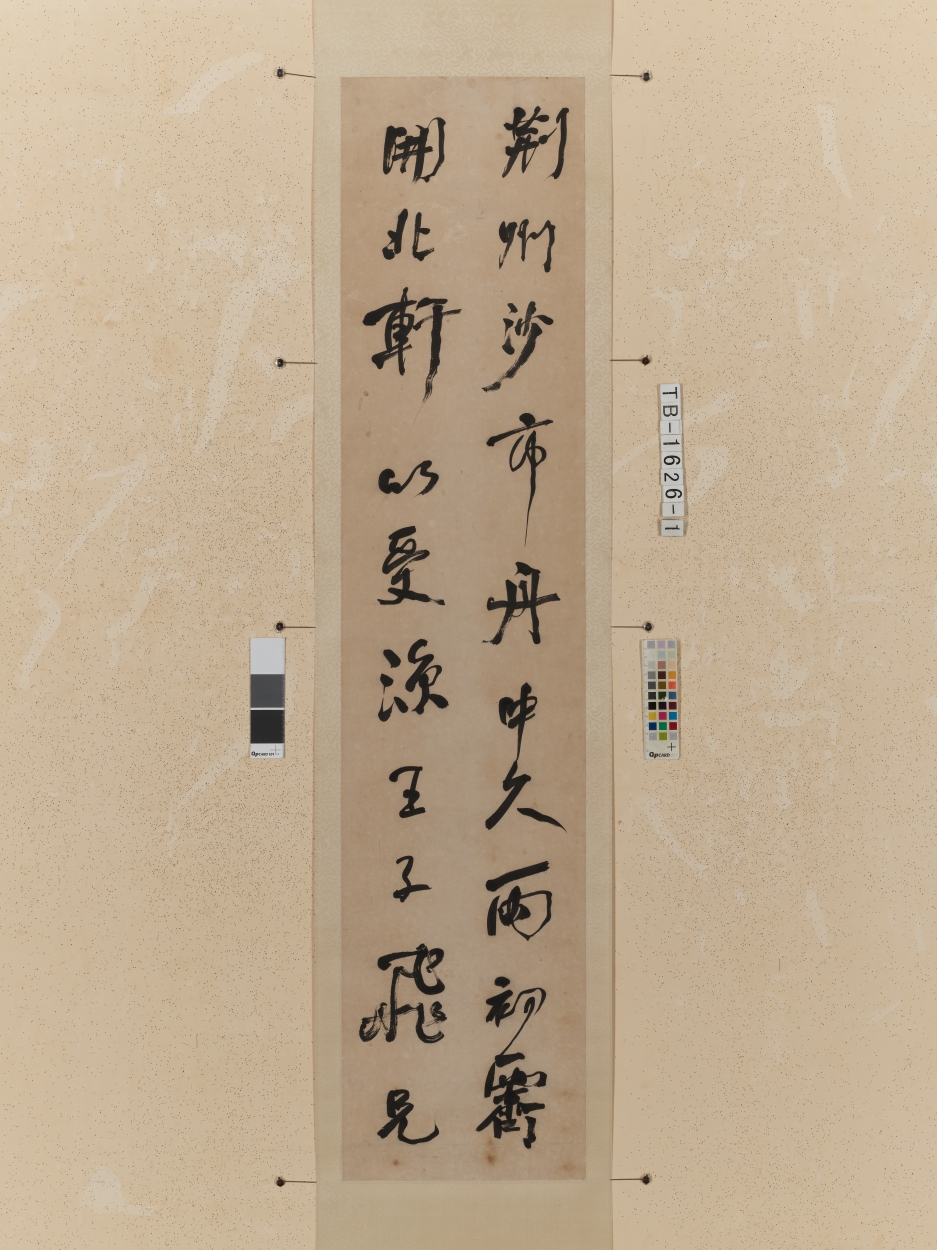 荊州沙市舟中久雨初霽
開北軒以受涼王子飛兄
TB-1626-1
QpCARD 101
QpCARD